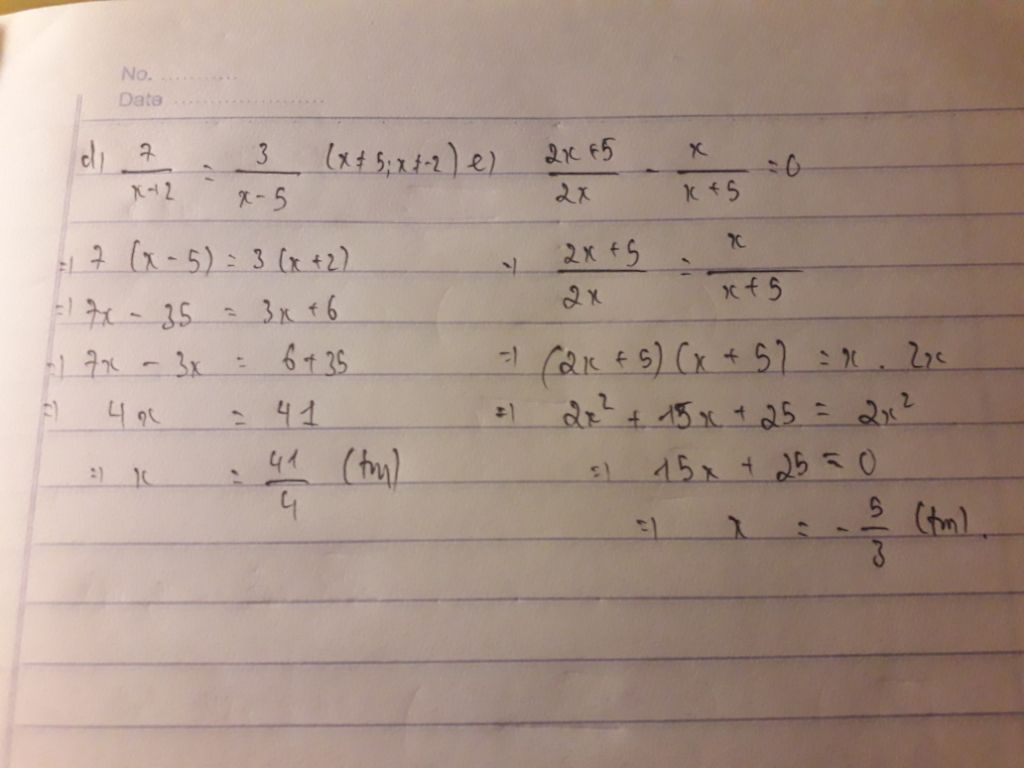 No. ...........
Date ......................
d) 7/(x+2) = 3/(x-5) (x≠5; x≠-2)
=) 7 (x - 5) = 3 (x+2)
=) 7x - 35 = 3x + 6
=) 7x - 3x = 6+35
=) 4x = 41
=) x = 41/4 (tm)
e) (2x+5)/(2x) - x/(x+5) = 0
=) (2x+5)/(2x) = x/(x+5)
=) (2x + 5) (x + 5) = x . 2x
=) 2x² + 15x + 25 = 2x²
=) 15x + 25 = 0
=) x = - 5/3 (tm).